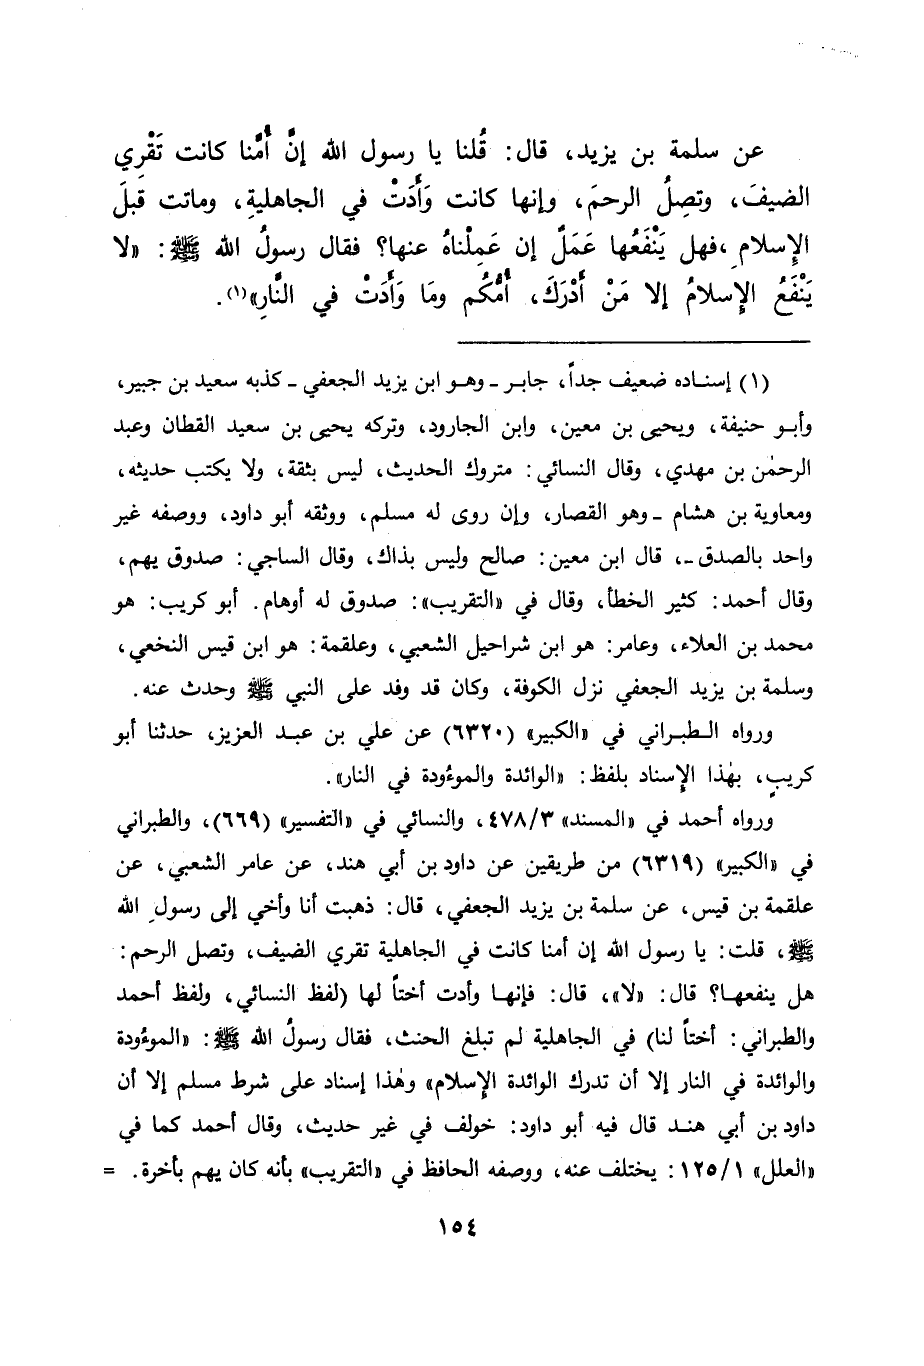 عن سلمة بن يزيد، قال: قُلنا يا رسول الله إنَّ أُمَّنا كانت تَقْرِي
الضيفَ، وتصِلُ الرحمَ، وإنها كانت وَأَدَتْ في الجاهلية، وماتت قبلَ
الإِسلامِ،فهل يَنْفَعُها عَمَلٌ إن عَمِلْناهُ عنها؟ فقال رسولُ الله ﷺ: «لا
يَنْفَعُ الإِسلامُ إلا مَنْ أَدْرَكَ، أُمُّكُم ومَا وَأَدَتْ في النَّارِ»(١).
(١) إسناده ضعيف جداً، جابر ـ وهو ابن يزيد الجعفي ـ كذبه سعيد بن جبير،
وأبو حنيفة، ويحيى بن معين، وابن الجارود، وتركه يحيى بن سعيد القطان وعبد
الرحمٰن بن مهدي، وقال النسائي: متروك الحديث، ليس بثقة، ولا يكتب حديثه،
ومعاوية بن هشام ـ وهو القصار، وإن روى له مسلم، ووثقه أبو داود، ووصفه غير
واحد بالصدق ـ، قال ابن معين: صالح وليس بذاك، وقال الساجي: صدوق يهم،
وقال أحمد: كثير الخطأ، وقال في «التقريب»: صدوق له أوهام. أبو كريب: هو
محمد بن العلاء، وعامر: هو ابن شراحيل الشعبي، وعلقمة: هو ابن قيس النخعي،
وسلمة بن يزيد الجعفي نزل الكوفة، وكان قد وفد على النبي ﷺ وحدث عنه.
ورواه الطبراني في «الكبير» (٦٣٢٠) عن علي بن عبد العزيز، حدثنا أبو
كريب، بهٰذا الإِسناد بلفظ: «الوائدة والموءودة في النار».
ورواه أحمد في «المسند» ٤٧٨/٣، والنسائي في «التفسير» (٦٦٩)، والطبراني
في «الكبير» (٦٣١٩) من طريقين عن داود بن أبي هند، عن عامر الشعبي، عن
علقمة بن قيس، عن سلمة بن يزيد الجعفي، قال: ذهبت أنا وأخي إلى رسول الله
ﷺ، قلت: يا رسول الله إن أمنا كانت في الجاهلية تقري الضيف، وتصل الرحم:
هل ينفعها؟ قال: «لا»، قال: فإنها وأدت أختاً لها (لفظ النسائي، ولفظ أحمد
والطبراني: أختاً لنا) في الجاهلية لم تبلغ الحنث، فقال رسولُ الله ﷺ: «الموءودة
والوائدة في النار إلا أن تدرك الوائدة الإِسلام» وهٰذا إسناد على شرط مسلم إلا أن
داود بن أبي هند قال فيه أبو داود: خولف في غير حديث، وقال أحمد كما في
«العلل» ١٢٥/١: يختلف عنه، ووصفه الحافظ في «التقريب» بأنه كان يهم بأخرة. =
١٥٤